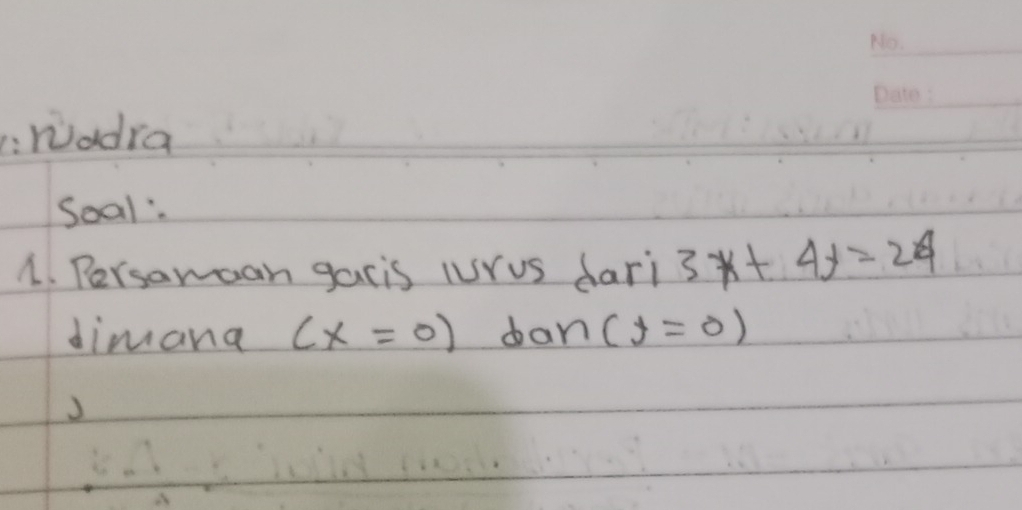 No.
Date :
: nadra
Soal :
1. Persamaan garis lurus dari 3x + 4y = 24
dimana (x = 0) dan (y = 0)